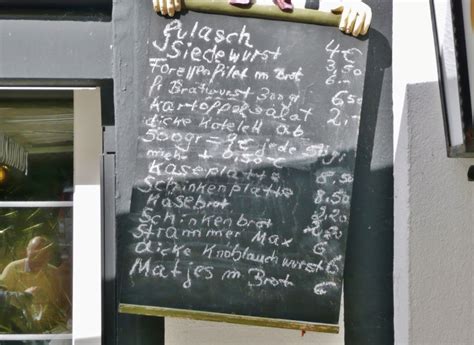 Gulasch 4€
Siedewurst 3,50
Forellenfilet m Brot 6.-
Bratwurst 300gr 6,50
Kartoffelsalat 2,-
dicke Kotelett ab
500gr = 7€ jede
mehr + 0,50€
Käseplatte
Schinkenplatte 8,50
Käsebrot
Schinkenbrot
Strammer Max 6
dicke Knoblauchwurst 6
Matjes m Brot 6